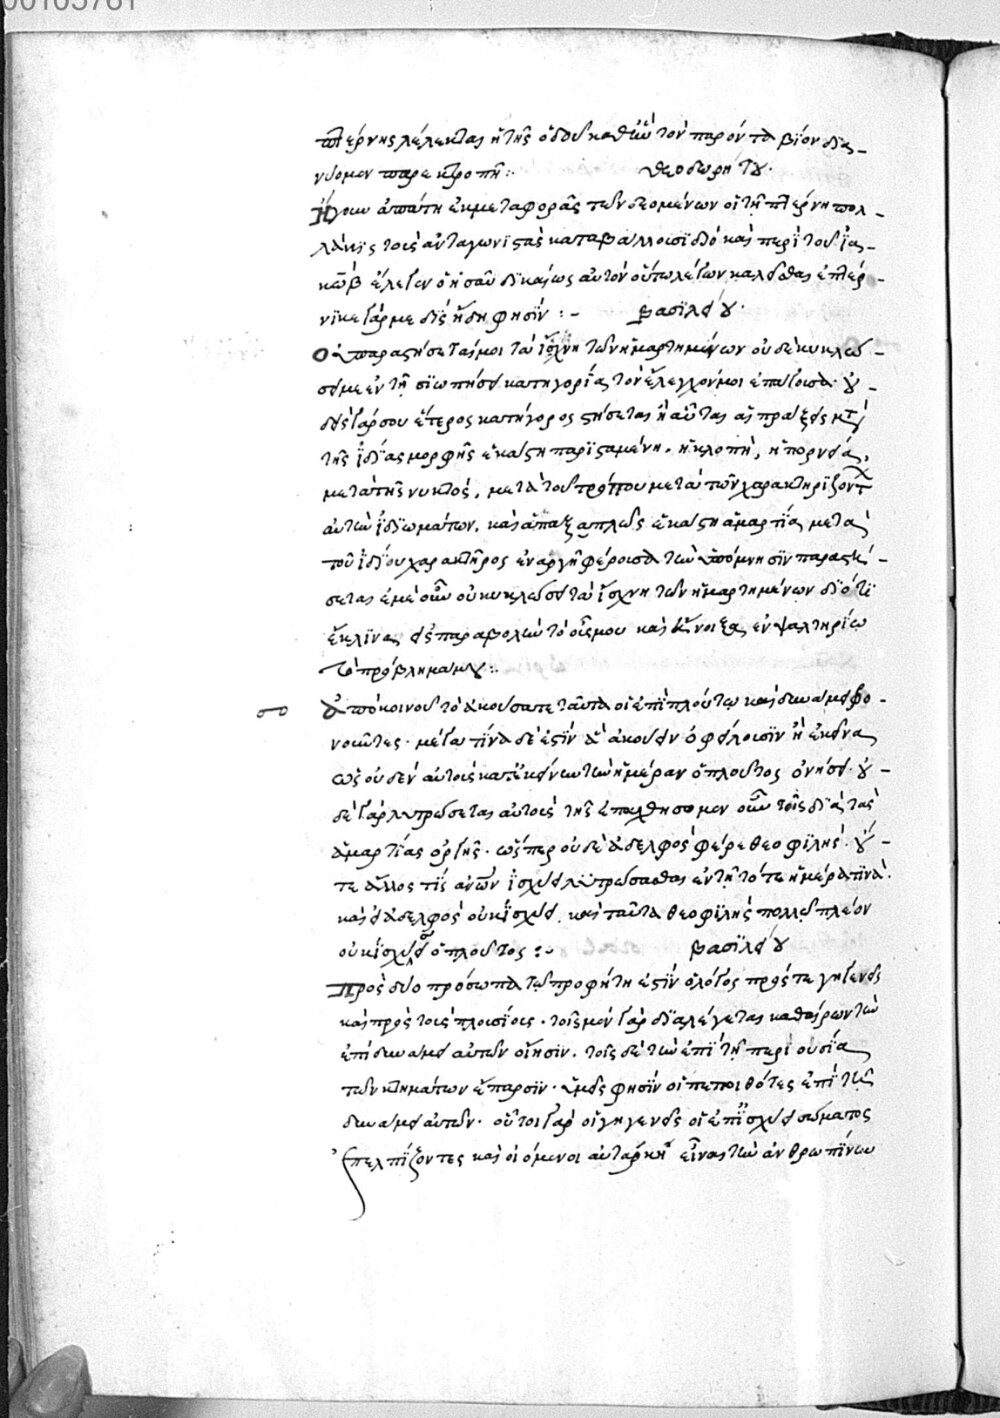 00105781
πτέρνης λέλεκται ἡ τῆς ὁδοῦ καθ' ἣν τὸν παρόντα βίον δια-
νύομεν παρεκτροπή:. Θεοδωρήτου.
Ἤγουν ἀπάτη ἐκ μεταφορᾶς τῶν θεομένων οἳ τῇ πτέρνῃ πολ-
λάκις τοὺς ἀνταγωνιστὰς καταβάλλουσι διὸ καὶ περὶ τοῦ Ἰα-
κὼβ ἔλεγεν ὁ Ἡσαῦ δικαίως αὐτὸν οὕτω λέγων καλεῖσθαι ἐπτέρ-
νικε γάρ με δὶς ἤδη φησίν :- Βασιλείου.
Ὁ παραστήσεταί μοι τὰ ἴχνη τῶν ἡμαρτημένων οὐδὲ κυκλώ-
σει με ἐν τῇ σιωπήσει κατηγορίᾳ τὸν ἔλεγχόν μοι ἐπάγουσα. οὐ-
δεὶς γάρ σου ἕτερος κατήγορος στήσεται ἢ αὗται αἱ πράξεις μετὰ
τῆς ἰδίας μορφῆς ἑκάστη παρισταμένη, ἡ κλοπή, ἡ πορνεία,
μετὰ τῆς νυκτός, μετὰ τοῦ τρόπου μετὰ τῶν χαρακτηριζόντων
αὐτὴν ἰδιωμάτων. καὶ ἅπαξ ἁπλῶς ἑκάστη ἁμαρτία μετὰ
τοῦ ἰδίου χαρακτῆρος ἐναργῆ φέρουσα τὴν ὑπόμνησιν παραστή-
σεται ἐμὲ οὖν οὐ κυκλώσει τὰ ἴχνη τῶν ἡμαρτημένων διότι
ἔκλινα εἰς παραβολὴν τὸ οὖς μου καὶ ἤνοιξα ἐν ψαλτηρίῳ
τὸ πρόβλημά μου:.
Ἀπὸ κοινοῦ τὸ ἀκούσατε ταῦτα οἱ ἐπὶ πλούτῳ καὶ δυνάμει φρο-
νοῦντες. μέγα τίνα δέ ἐστιν ἃ ἀκούειν ὀφείλουσιν ἢ ἐκεῖνα
ὡς οὐδὲν αὐτοὺς κατ' ἐκείνην τὴν ἡμέραν ὁ πλοῦτος ὀνήσει. οὐ-
δὲ γὰρ λυτρώσεται αὐτοὺς τῆς ἐπελθησομένουν τοῖς διὰ τὰς
ἁμαρτίας ὀργῆς. ὥσπερ οὐδὲ ἀδελφὸς φέρε θεοφιλής. οὔ-
τε ἄλλος τις ἀνθρώπων ἰσχύει λυτρώσασθαι ἐν τῇ τότε ἡμέρᾳ τινά.
καὶ εἰ ἀδελφὸς οὐκ ἰσχύει, καὶ ταῦτα θεοφιλὴς πολλῷ πλέον
οὐκ ἰσχύει ὁ πλοῦτος :. Βασιλείου
Πρὸς δύο πρόσωπα τῷ προφήτῃ ἐστὶν ὁ λόγος πρός τε γηγενεῖς
καὶ πρὸς τοὺς πλουσίους. τοῖς μὲν γὰρ διαλέγεται καθαίρων τὴν
ἐπὶ δυνάμει αὐτῶν οἴησιν. τοῖς δὲ τὴν ἐπὶ τῇ περιουσίᾳ
τῶν κτημάτων ἔπαρσιν. ὑμεῖς φησὶν οἱ πεποιθότες ἐπὶ τῇ
δυνάμει αὐτῶν. οὗτοι γὰρ οἱ γηγενεῖς οἱ ἐπ' ἰσχύει σώματος
ἐπελπίζοντες καὶ οἰόμενοι αὐτάρκη εἶναι τὴν ἀνθρωπίνην